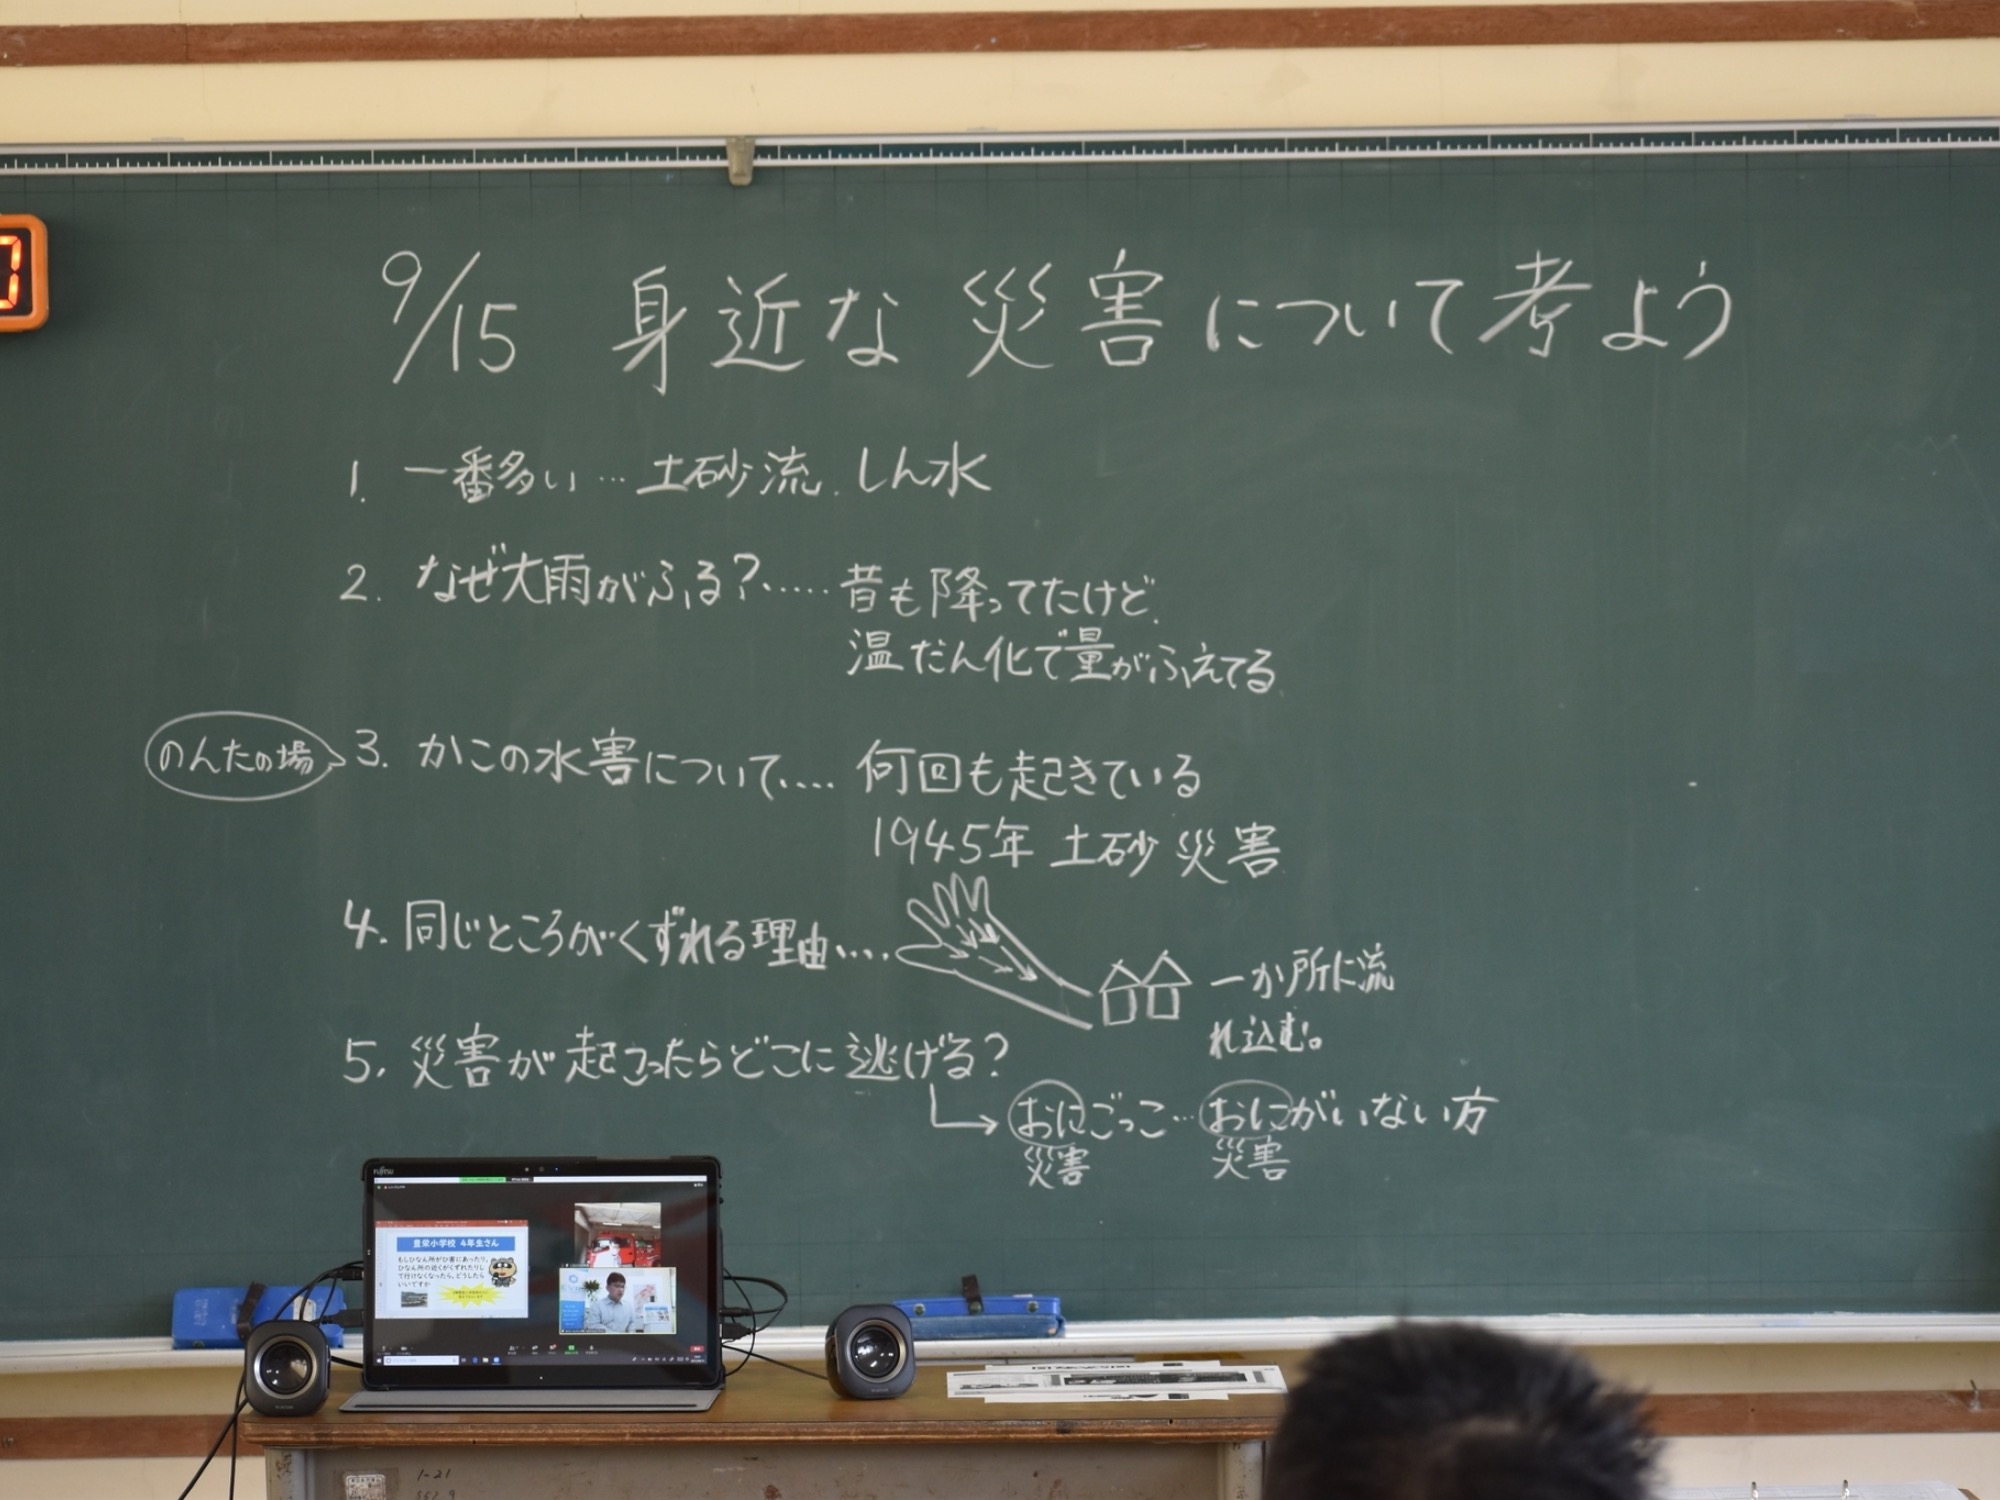 9/15 身近な災害について考よう
1. 一番多い…土砂流、しん水
2. なぜ大雨がふる?……昔も降ってたけど、
温だん化で量がふえてる
のんたの場
3. かこの水害について、… 何回も起きている
1945年 土砂災害
4. 同じところがくずれる理由、…
一か所に流
れ込む。
5. 災害が起こったらどこに逃げる?
おにごっこ…おにがいない方
災害 災害
FUJITSU
豊栄小学校 4年生さん
もしひなん所がひ害にあったり、
ひなん所の近くがくずれたりし
て行けなくなったら、どうしたら
いいですか
1-21